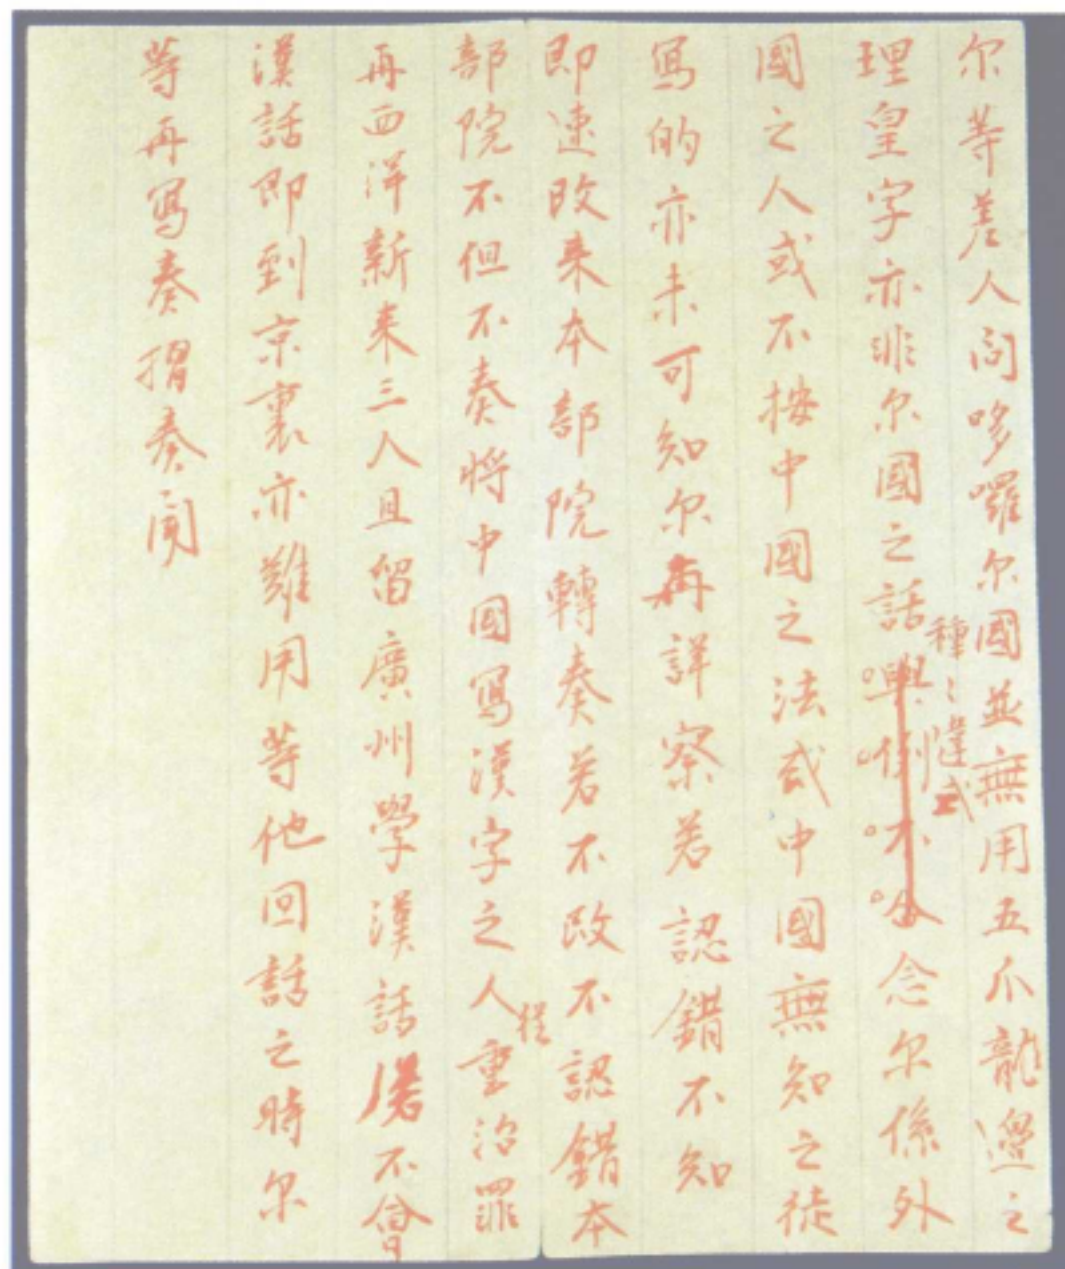 尔等差人问哆囉尔國並無用五爪龍邊之
理皇字亦非尔國之話與例不合念尔係外
種〻違式
國之人或不按中國之法或中國無知之徒
寫的亦未可知尔再詳察若認錯不知
即速改来本部院轉奏若不改不認錯本
部院不但不奏将中國寫漢字之人重治罪
從
再西洋新来三人且留廣州學漢話若不會
漢話即到京裏亦難用等他回話之時尔
等再寫奏摺奏闻